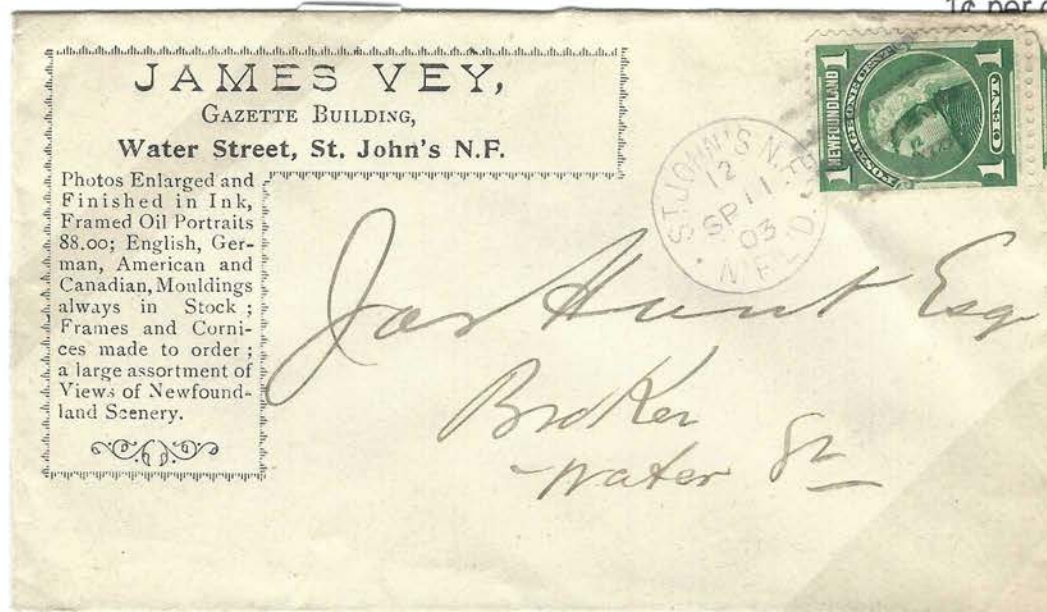 1¢ per
JAMES VEY,
GAZETTE BUILDING,
Water Street, St. John's N.F.
Photos Enlarged and
Finished in Ink,
Framed Oil Portraits
88.00; English, Ger-
man, American and
Canadian, Mouldings
always in Stock;
Frames and Corni-
ces made to order;
a large assortment of
Views of Newfound-
land Scenery.
1 NEWFOUNDLAND 1
POSTAGE ONE CENT
1 CENT 1
ST. JOHN'S N.F.
12
SP 11
03
N.F.L.D.
Jas Hunt Esq
Broker
Water St